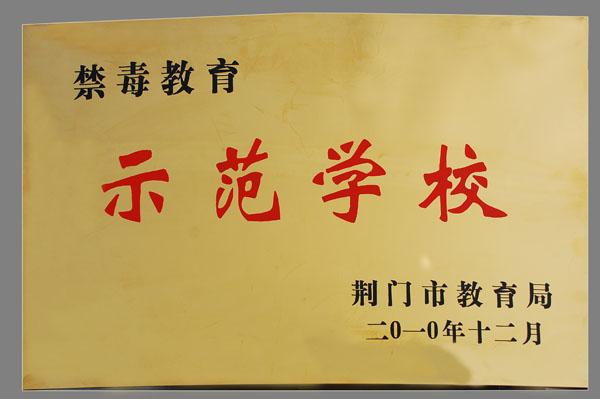 禁毒教育
示范学校
荆门市教育局
二0一0年十二月